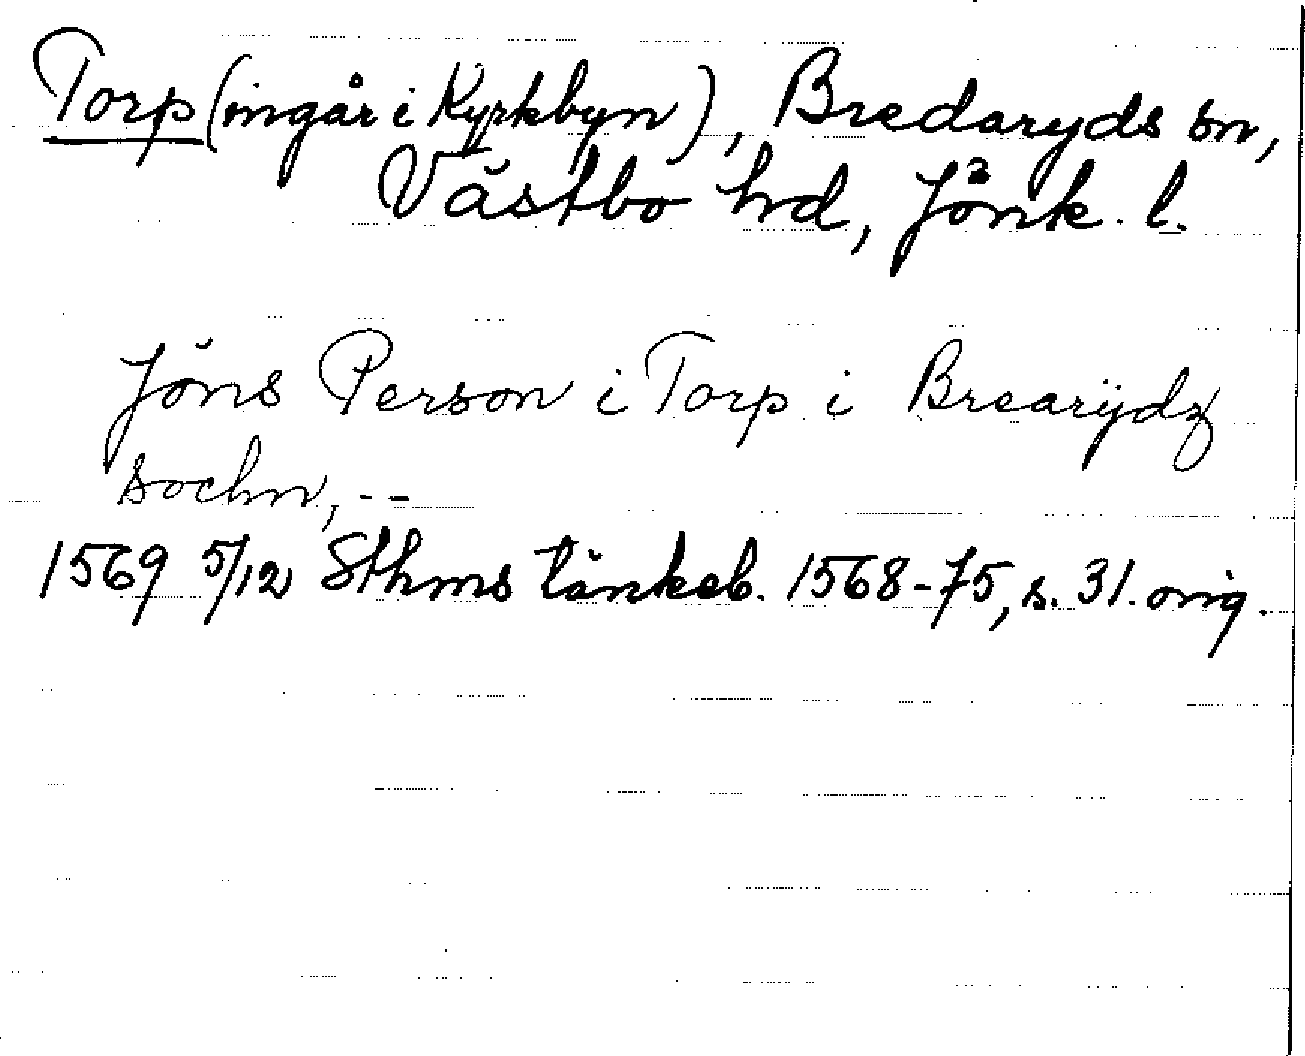 Torp (ingår i Kyrkbyn), Bredaryds sn,
Västbo hrd, Jönk. l.
Jöns Person i Torp i Brearÿdz
sochn, --
1569 5/12 Sthms tänkeb. 1568-75, s. 31. orig.